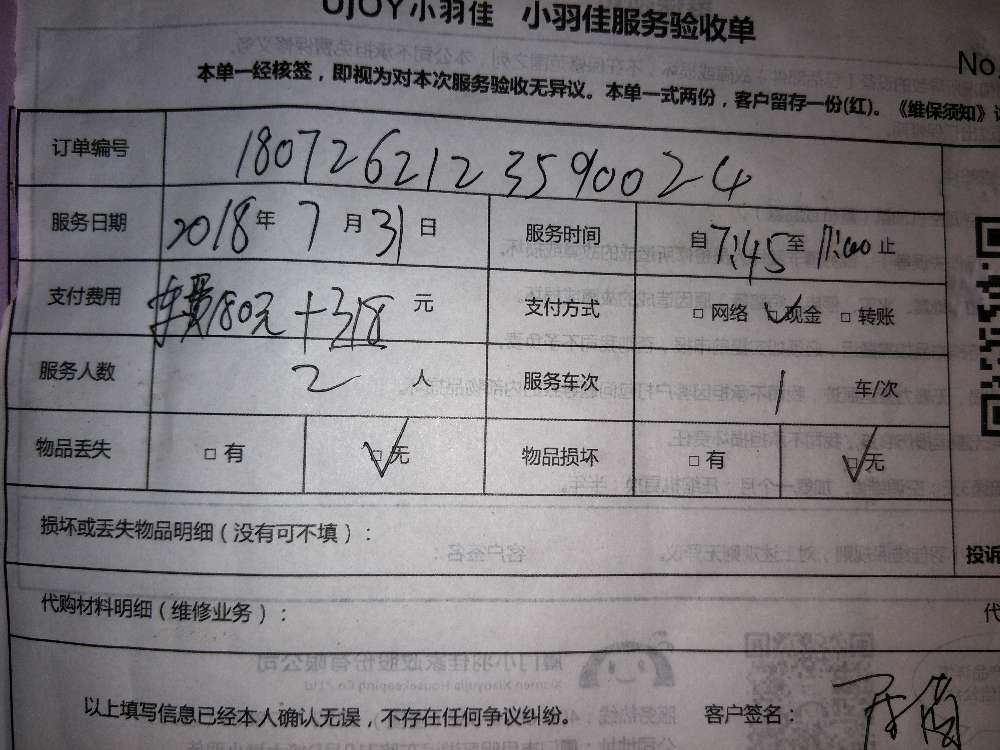 UJOY小羽佳 小羽佳服务验收单
No.
本单一经核签，即视为对本次服务验收无异议。本单一式两份，客户留存一份(红)。《维保须知》
订单编号 1807262123590024
服务日期 2018年 7月31日 服务时间 自7:45至11:00止
支付费用 180元+318元 支付方式 □网络 ☑现金 □转账
服务人数 2人 服务车次 1车/次
物品丢失 □有 ☑无 物品损坏 □有 ☑无
损坏或丢失物品明细（没有可不填）：
投诉
代购材料明细（维修业务）：
代
以上填写信息已经本人确认无误，不存在任何争议纠纷。 客户签名：